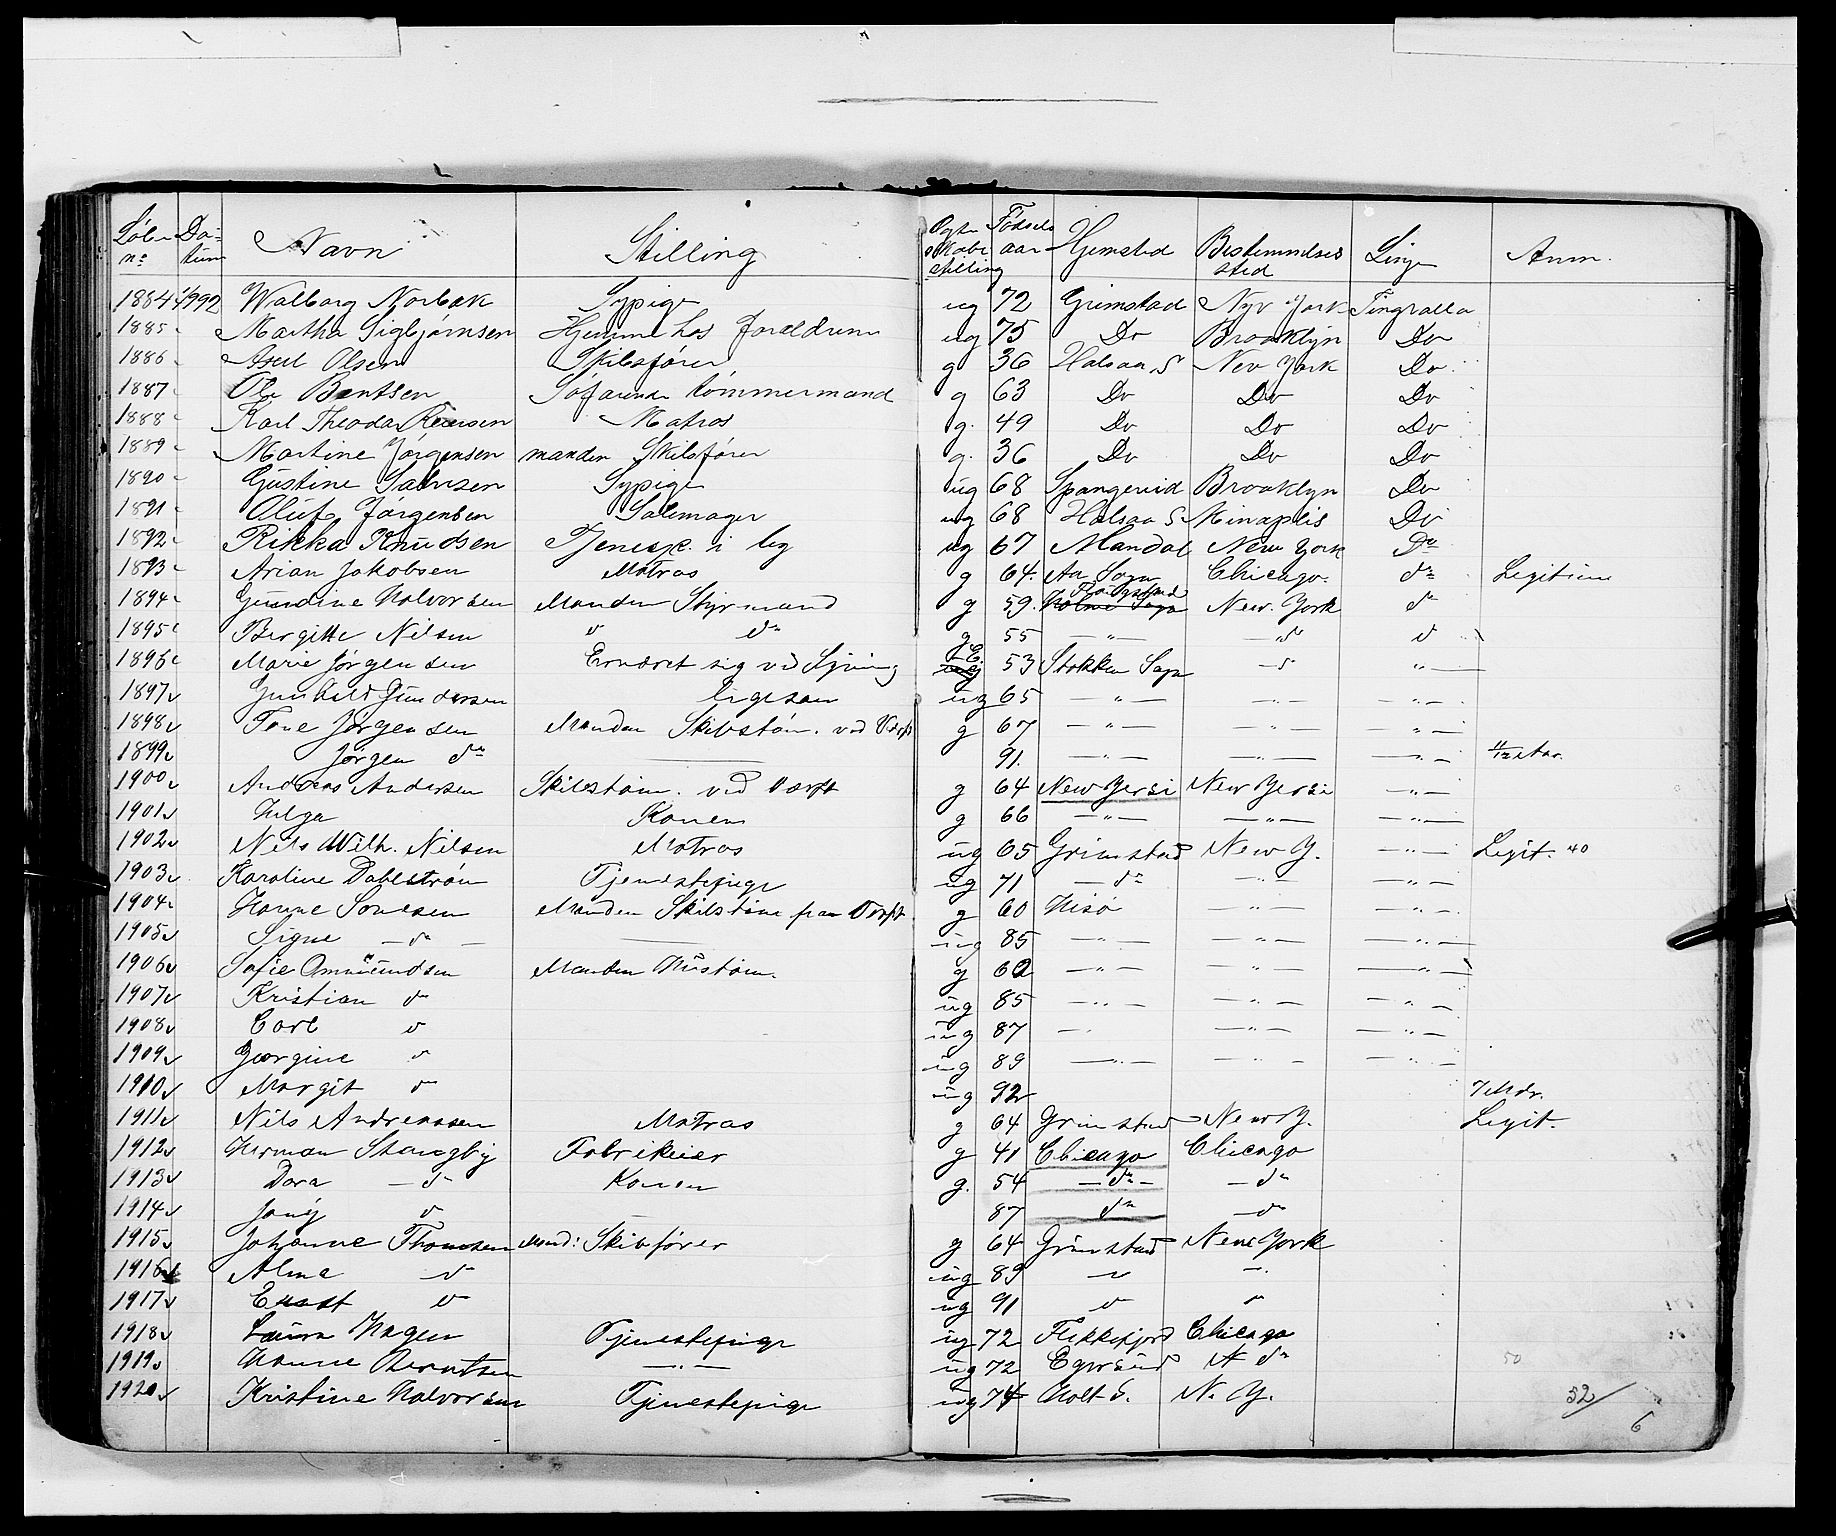 Løbe no Datum Navn Stilling Ægteskabsstilling Fødsels aar Hjemsted Bestemmelses sted Linje Anm.
1884 Walborg Norbæk Sypige ug 72 Grimstad New York Tingvalla
1885 Martha Sigbjørnsen Hjemme hos forældrene ug 75 Do Brooklyn Do
1886 Axel Olsen Skibsfører g 36 Halsaa S New York Do
1887 Ole Bentsen Søfarende tømmermand g 63 Do Do Do
1888 Karl Theodor Matros g. 49 Do Do Do
1889 Martine Jørgensen manden Skibsfører g. 36 Do Do Do
1890 Gustine Salvesen Sypige ug 68 Spangereid Brooklyn Do
1891 Oluf Jørgensen Salmager ug 68 Halsaa S. Minaplis Do
1892 Rikka Knudsen Tjenespige ug 67 Mandal New York Do
1893 Arian Jakobsen Matros g 64. Aa Sogn Chicago. do Legitim
1894 Gundine Halvorsen Manden Styrmand g 59. Holme Sogn New. York do
1895 Birgitte Nilsen " do g 55 — " — — do d
1896 Marie Jørgensen Ernæret sig ved Syning ug 53 Stokken Sogn — d " —
1897 Gunhild Gundersen ligesaa ug 65 — " — — " — — " —
1898 Tone Jørgensen Manden Skibstøm. ved Værft g 67 — " — — " — — " —
1899 Jørgen do — 91. — " — — " — — " — 11/12 Aar.
1900 Andreas Andersen Skibstøm. ved Værft g 64 New Yersi New Yersi — " —
1901 Helga Konen g 66 — " — — " — — " —
1902 Nils Wilh. Nilsen Matros ug 65 Grimstad New Y. — " — Legit. 40
1903 Karoline Dahlstrøm Tjenestepige ug 71 — do — " — — " —
1904 Hanne Sonesen Manden Skibstøm fra Værft. g 60 Hisø — " — — " —
1905 Signe — do — — ug 85 — " — — " — — " —
1906 Sofie Ommundsen Manden Hustøm. g 62 — " — — " — — " —
1907 Kristian do ug 85 — " — — " — — " —
1908 Carl d ug 87 — " — " — — " —
1909 Georgine d ug 89 — " — — " — — " —
1910 Margit do ug 92 7 Mdr.
1911 Nils Andreassen Matros g 64 Grimstad New Y. Legit.
1912 Herman Stangby Fabrikeier g 41 Chicago Chicago
1913 Dora — do Konen g. 54 — do — — do
1914 d — 87 do — do
1915 Johanne Thomsen Mand: Skibsfører g 64 Grimstad New York
1916 Alma — d ug 89 — d — "
1917 Ernst d ug 91 d d
1918 Laura Hagen Tjenestepige ug 72 Flekkefjord Chicago
1919 Hanne Berntsen — " — ug 72 Egersund do
1920 Kristine Halvorsen Tjenestepige ug 74 Holt S. N. Y.
50
52/6